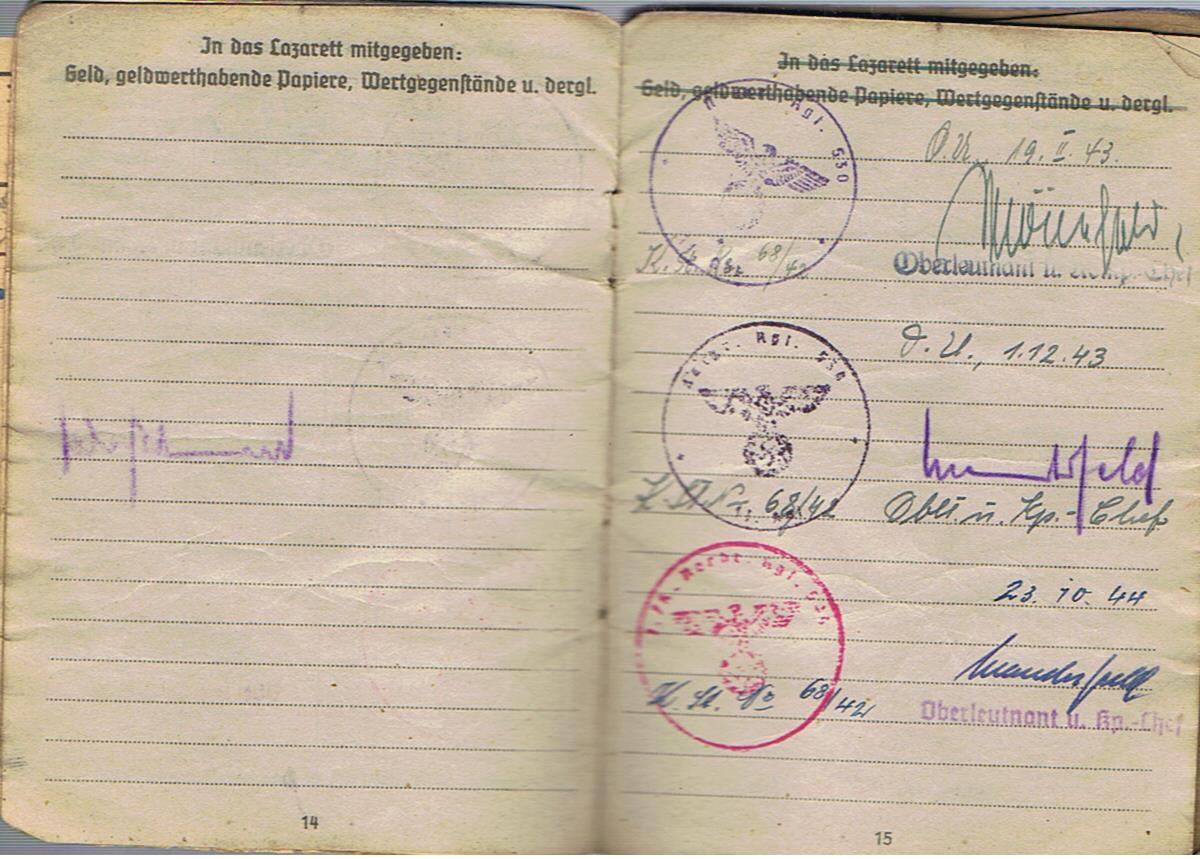 In das Lazarett mitgegeben:
Geld, geldwerthabende Papiere, Wertgegenstände u. dergl.
14
In das Lazarett mitgegeben:
Geld, geldwerthabende Papiere, Wertgegenstände u. dergl.
Rgt. 530
O.U., 19.II.43.
68/42
Oberleutnant u. Komp.-Chef
Rgt. 530
O.U., 1.12.43
K.St.Nr. 68/42
Oblt u. Kp.-Chef
Rgt.
23. 10. 44
K. St. No 68/42
Oberleutnant u. Kp.-Chef
15